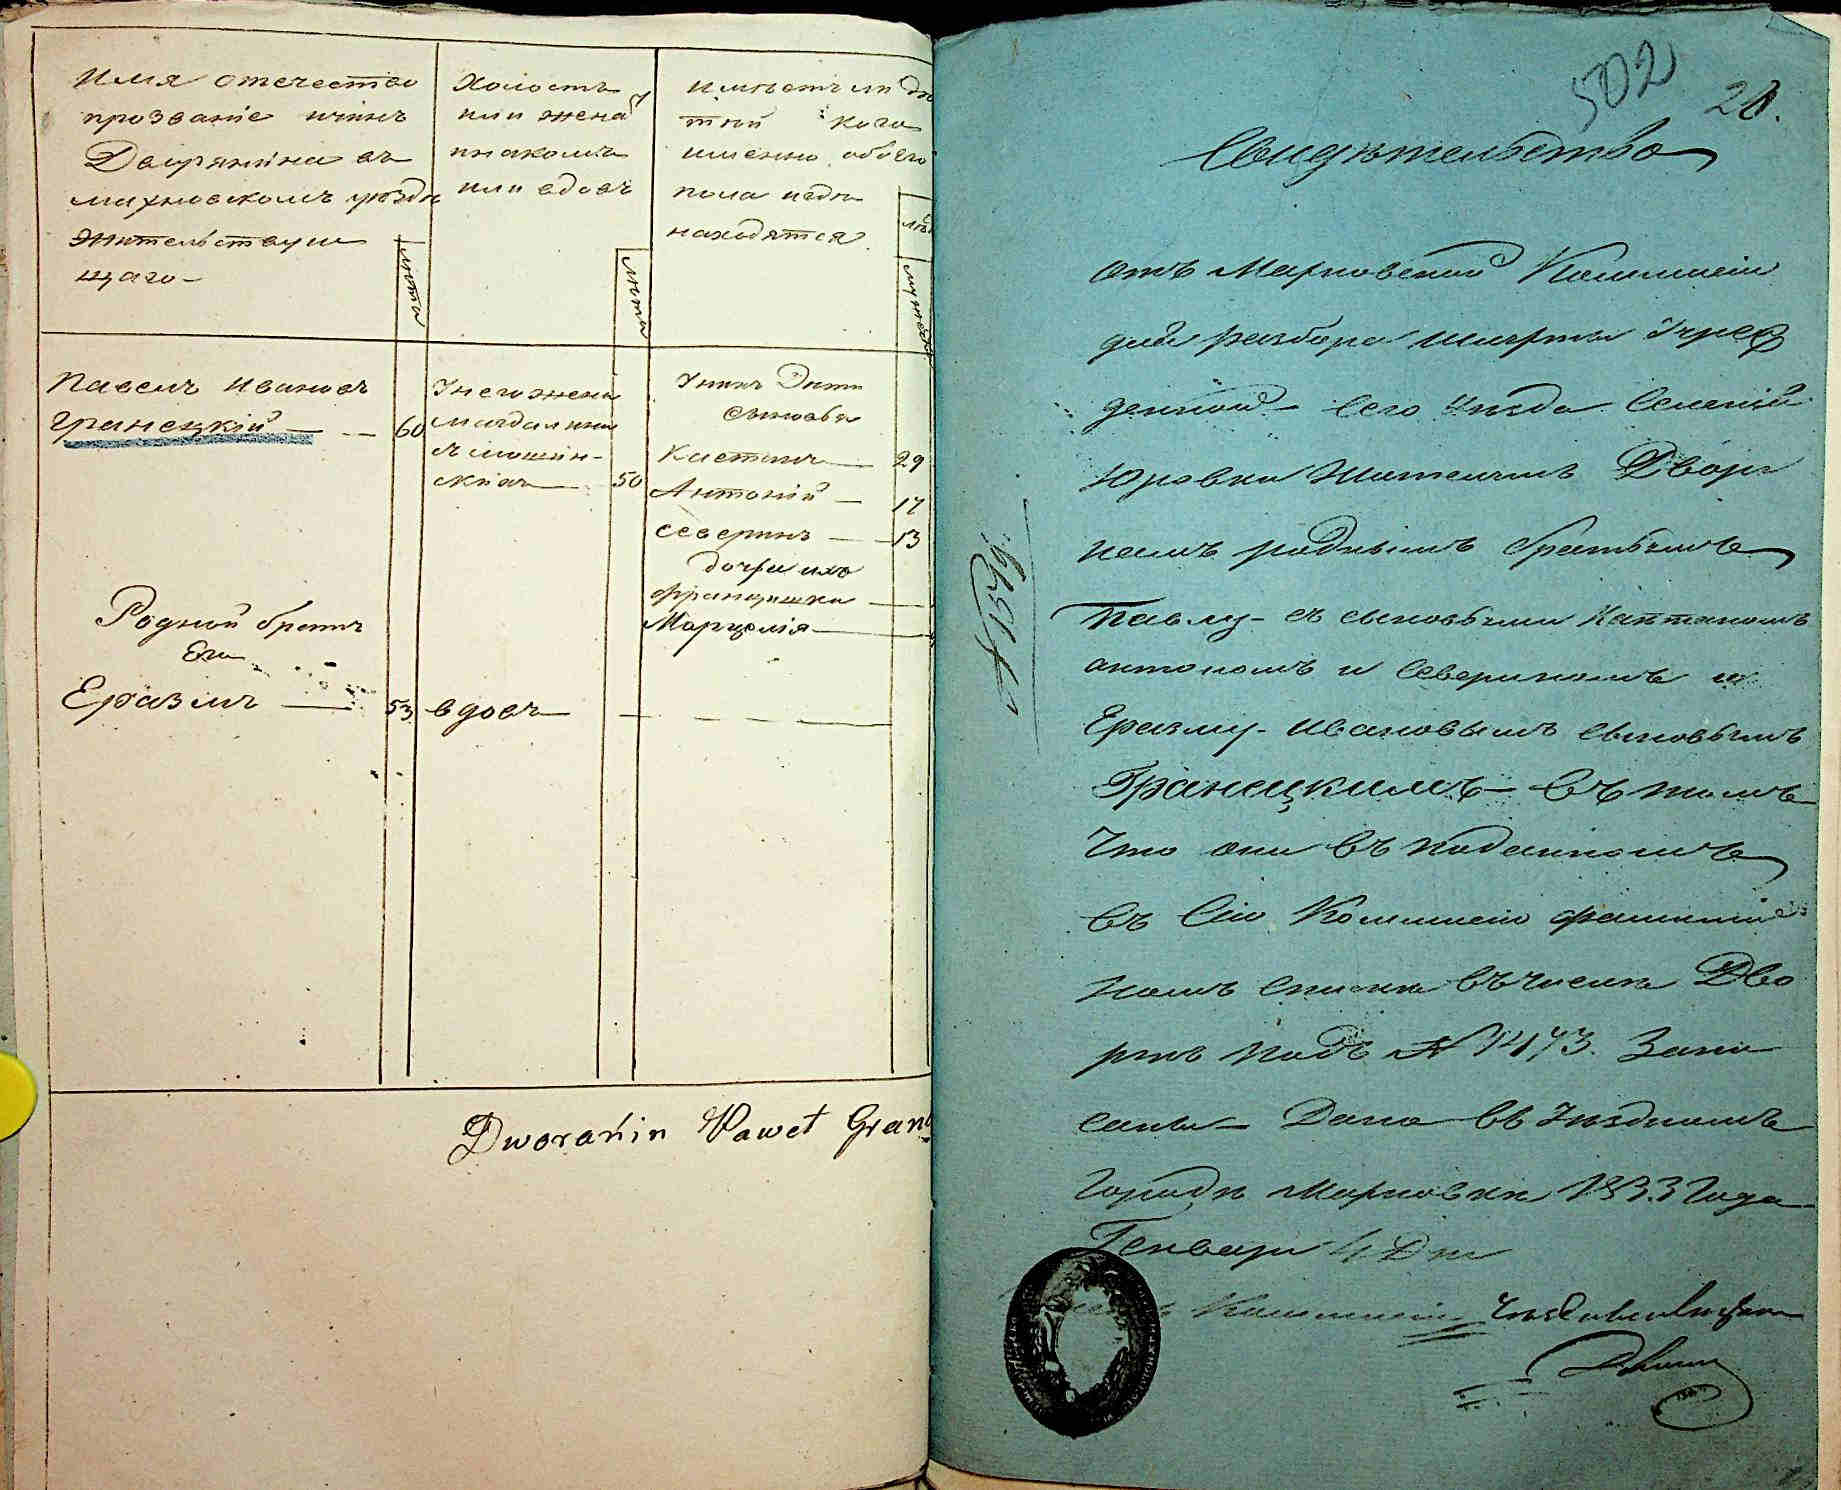 Имя отечество
прозваніе и чинъ
Дворянина въ
махновскомъ уѣздѣ
жительствую
щаго
лѣта
Холостъ
или женатъ
и на комъ
или вдовъ
лѣта
имѣетъ ли дѣ
тей кого
именно обоего
пола и гдѣ
находятся
Павелъ Ивановъ
Гранецкій — — 60
У него жена
магдалина
50
У нихъ Дѣти
сыновья
Каетанъ — 29
Антоній — 17
Северинъ — 13
дочери ихъ
Францишка —
Марцелія —
Родной братъ
Его
Еразмъ — 53 вдовъ —
Dworanin Paweł Gran
502
28.
Свидѣтельство
отъ Махновской Коммисіи
для разбора шляхты Учреж
денной Сего Уѣзда Селенія
Юровки Жителямъ Дворя
намъ роднымъ братьямъ
Павлу съ сыновьями Каетаномъ
антономъ и Севериномъ и
Еразму Ивановымъ сыновьямъ
Гранецкимъ въ томъ
Что они въ поданномъ
въ Сію Коммисію фамилiе
номъ спискѣ въ числѣ Дво
рянъ подъ № 1473. Запи
саны Дано въ Уѣздномъ
городѣ Махновкѣ 1833 Года
Генваря 4 Дня
Коммисіи